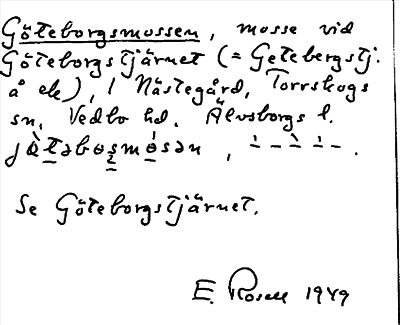 Göteborgsmossen, mosse vid
Göteborgstjärnet (= Getebergstj.
å ek), 1 Nästegård, Torrskogs
sn, Vedbo hd. Älvsborgs l.
Se Göteborgstjärnet.
E. Rosell 1949